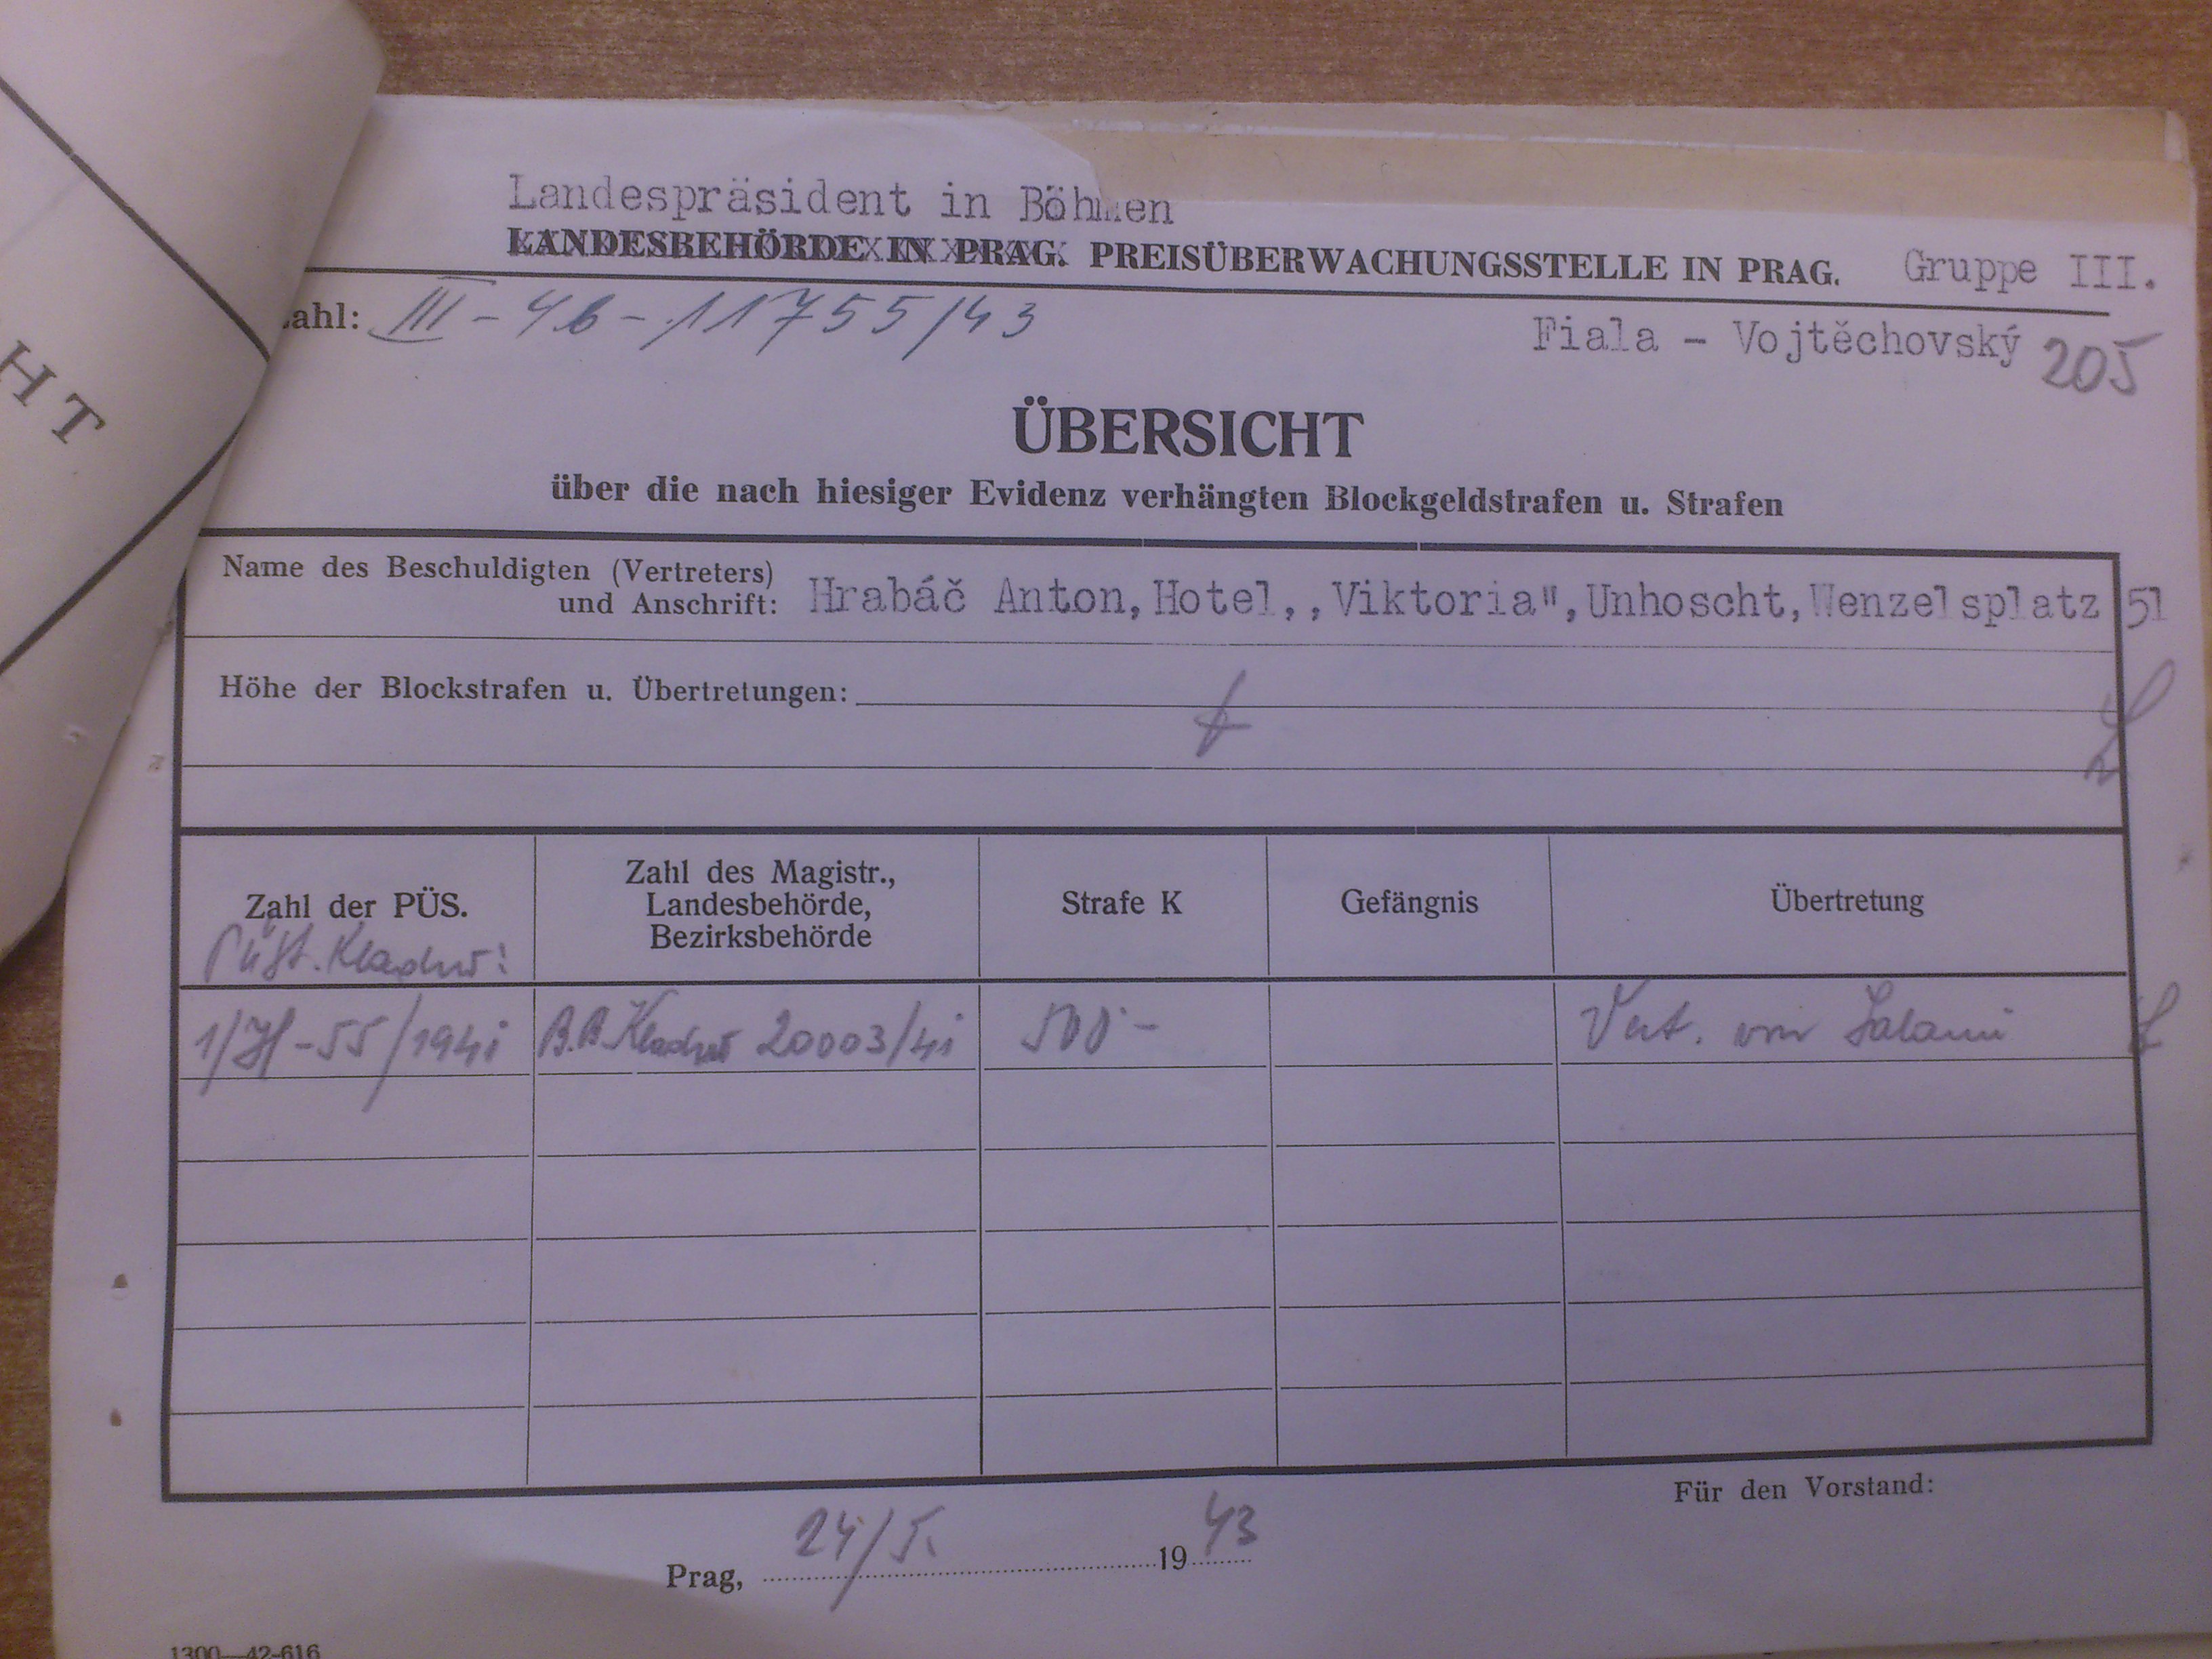 HT
Landespräsident in Böhmen
LANDESBEHÖRDE IN PRAG. PREISÜBERWACHUNGSSTELLE IN PRAG. Gruppe III.
ahl: III-4b-11755/43
Fiala - Vojtěchovský 205
ÜBERSICHT
über die nach hiesiger Evidenz verhängten Blockgeldstrafen u. Strafen
Name des Beschuldigten (Vertreters)
und Anschrift: Hrabáč Anton, Hotel,,Viktoria", Unhoscht, Wenzelsplatz 51
Höhe der Blockstrafen u. Übertretungen:
Zahl der PÜS.
Zahl des Magistr.,
Landesbehörde,
Bezirksbehörde
Strafe K
Gefängnis
Übertretung
Kladno:
1/H-55/1941 B.B. Kladno 20003/41 500- Vert. von Salami
Für den Vorstand:
Prag, 24/5. 1943
1300—42-616